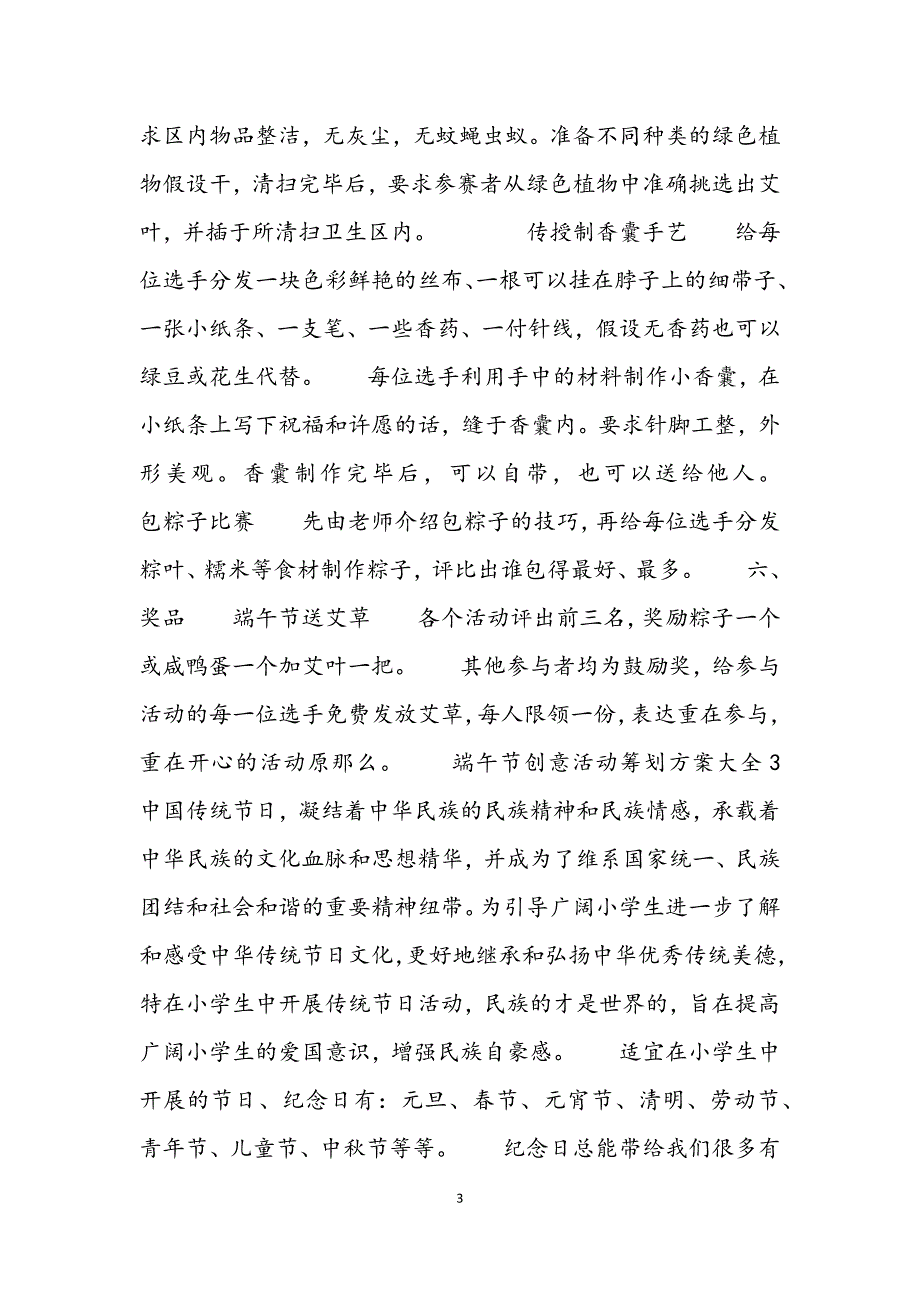 求区内物品整洁，无灰尘，无蚊蝇虫蚁。准备不同种类的绿色植
物假设干，清扫完毕后，要求参赛者从绿色植物中准确挑选出艾
叶，并插于所清扫卫生区内。　　　　传授制香囊手艺　　给每
位选手分发一块色彩鲜艳的丝布、一根可以挂在脖子上的细带子、
一张小纸条、一支笔、一些香药、一付针线，假设无香药也可以
绿豆或花生代替。　　每位选手利用手中的材料制作小香囊，在
小纸条上写下祝福和许愿的话，缝于香囊内。要求针脚工整，外
形美观。香囊制作完毕后，可以自带，也可以送给他人。
包粽子比赛　　先由老师介绍包粽子的技巧，再给每位选手分发
粽叶、糯米等食材制作粽子，评比出谁包得最好、最多。　　六、
奖品　　端午节送艾草　　各个活动评出前三名，奖励粽子一个
或咸鸭蛋一个加艾叶一把。　　其他参与者均为鼓励奖，给参与
活动的每一位选手免费发放艾草，每人限领一份，表达重在参与，
重在开心的活动原那么。　　端午节创意活动筹划方案大全 3
中国传统节日，凝结着中华民族的民族精神和民族情感，承载着
中华民族的文化血脉和思想精华，并成为了维系国家统一、民族
团结和社会和谐的重要精神纽带。为引导广阔小学生进一步了解
和感受中华传统节日文化，更好地继承和弘扬中华优秀传统美德，
特在小学生中开展传统节日活动，民族的才是世界的，旨在提高
广阔小学生的爱国意识，增强民族自豪感。　　适宜在小学生中
开展的节日、纪念日有：元旦、春节、元宵节、清明、劳动节、
青年节、儿童节、中秋节等等。　　纪念日总能带给我们很多有
3